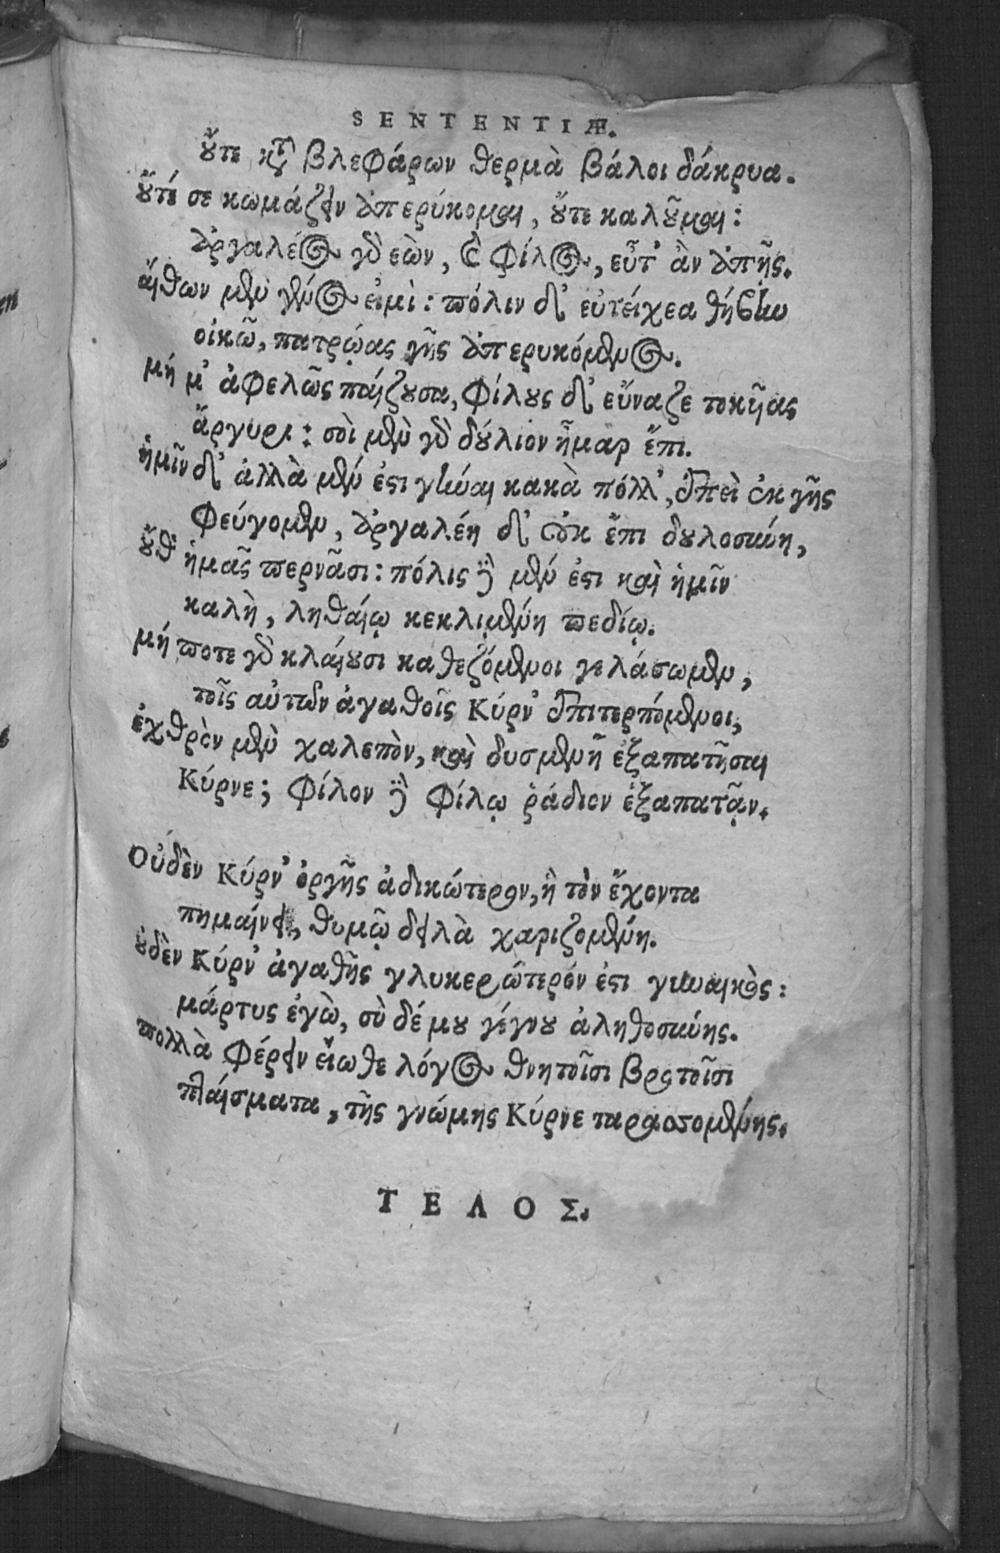 SENTENTIÆ.
οὔτε κατὰ βλεφάρων θερμὰ βάλοι δάκρυα.
οὔτέ σε κωμάζειν ἀπερύκομαι, οὔτε καλοῦμαι:
ἀργαλέος γὰρ ἐὼν, καὶ φίλος, εὖτ' ἂν ἀπῇς.
αἴθων μὲν γένος εἰμὶ: πόλιν δ' εὐτείχεα θήβην
οἰκῶ, πατρῴας γῆς ἀπερυκόμενος.
μή μ' ἀφελῶς παίζουσα, φίλους δ' εὔναζε τοκῆας
ἄργυρι: σοὶ μὲν γὰρ δούλιον ἦμαρ ἔπι.
ἡμῖν δ' ἀλλὰ μέν ἐστι γύναι κακὰ πόλλ', ἐπεὶ ἐκ γῆς
φεύγομεν, ἀργαλέη δ' οὐκ ἔπι δουλοσύνη,
οὔθ' ἡμᾶς περνᾶσι: πόλις γε μέν ἐστι καὶ ἡμῖν
καλὴ, ληθαίῳ κεκλιμένη πεδίῳ.
μή ποτε γὰρ κλαίουσι καθεζόμενοι γελάσωμεν,
τοῖς αὐτῶν ἀγαθοῖς Κύρν' ἐπιτερπόμενοι,
ἐχθρὸν μὲν χαλεπὸν, καὶ δυσμενῆ ἐξαπατῆσαι
Κύρνε; φίλον δὲ φίλῳ ῥάδιον ἐξαπατᾷν.
Οὐδὲν Κύρν' ὀργῆς ἀδικώτερον, ἣ τὸν ἔχοντα
πημαίνει, θυμῷ δειλὰ χαριζομένη.
οὐδὲν Κύρν' ἀγαθῆς γλυκερώτερόν ἐστι γυναικὸς:
μάρτυς ἐγὼ, σὺ δέ μου γίγνου ἀληθοσύνης.
πολλὰ φέρειν εἴωθε λόγος θνητοῖσι βροτοῖσι
πλαίσματα, τῆς γνώμης Κύρνε ταρασσομένης.
ΤΕΛΟΣ.